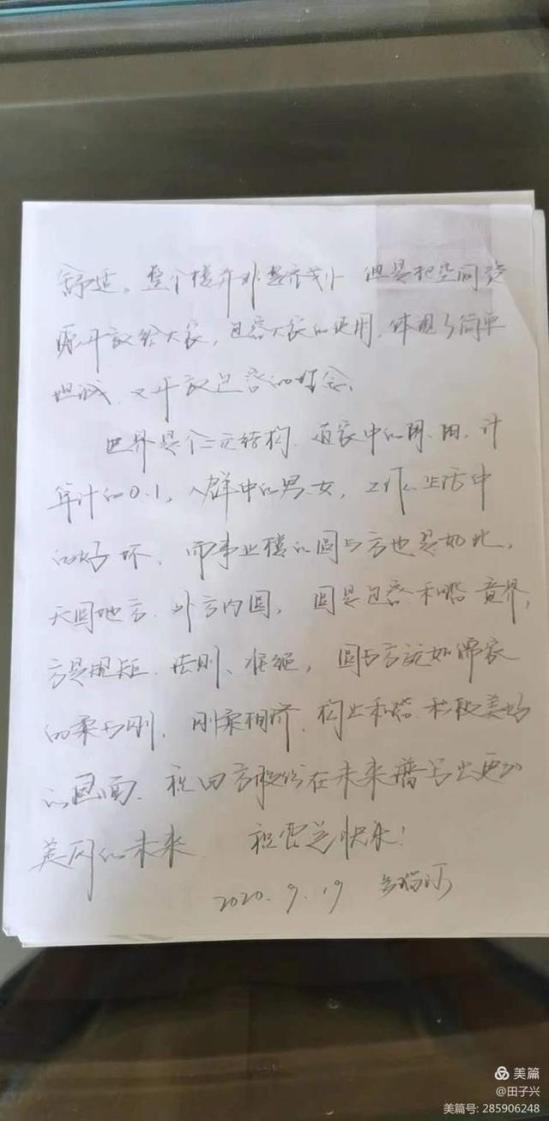 舒适。整个楼并非是齐划 但是把空间
开放给大家，包容大家的使用，体现了简单
坦诚、又开放包容的
世界是个二元结构，道家中的阴、阳，计
算计的0.1，人群中的男、女，工作、生活中
的好坏，而事业楼的圆与方也是如此，
天圆地方，外方内圆，圆是包容和谐意界，
方是规矩、法则、准绳，圆与方就如儒家
的柔与刚，刚柔相济，构上和谐积极美好
的画面，祝 方股份在未来谱写出更
美 的未来 祝 总快乐！
2020.9.19
美篇
@田子兴
美篇号: 285906248